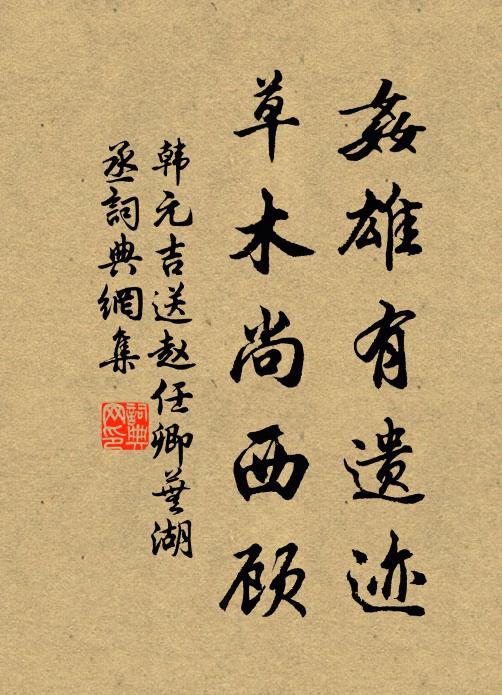 姦雄有遗迹
草木尚西顾
韩元吉送赵任卿蕪湖
丞詞典網集
詞典
网印